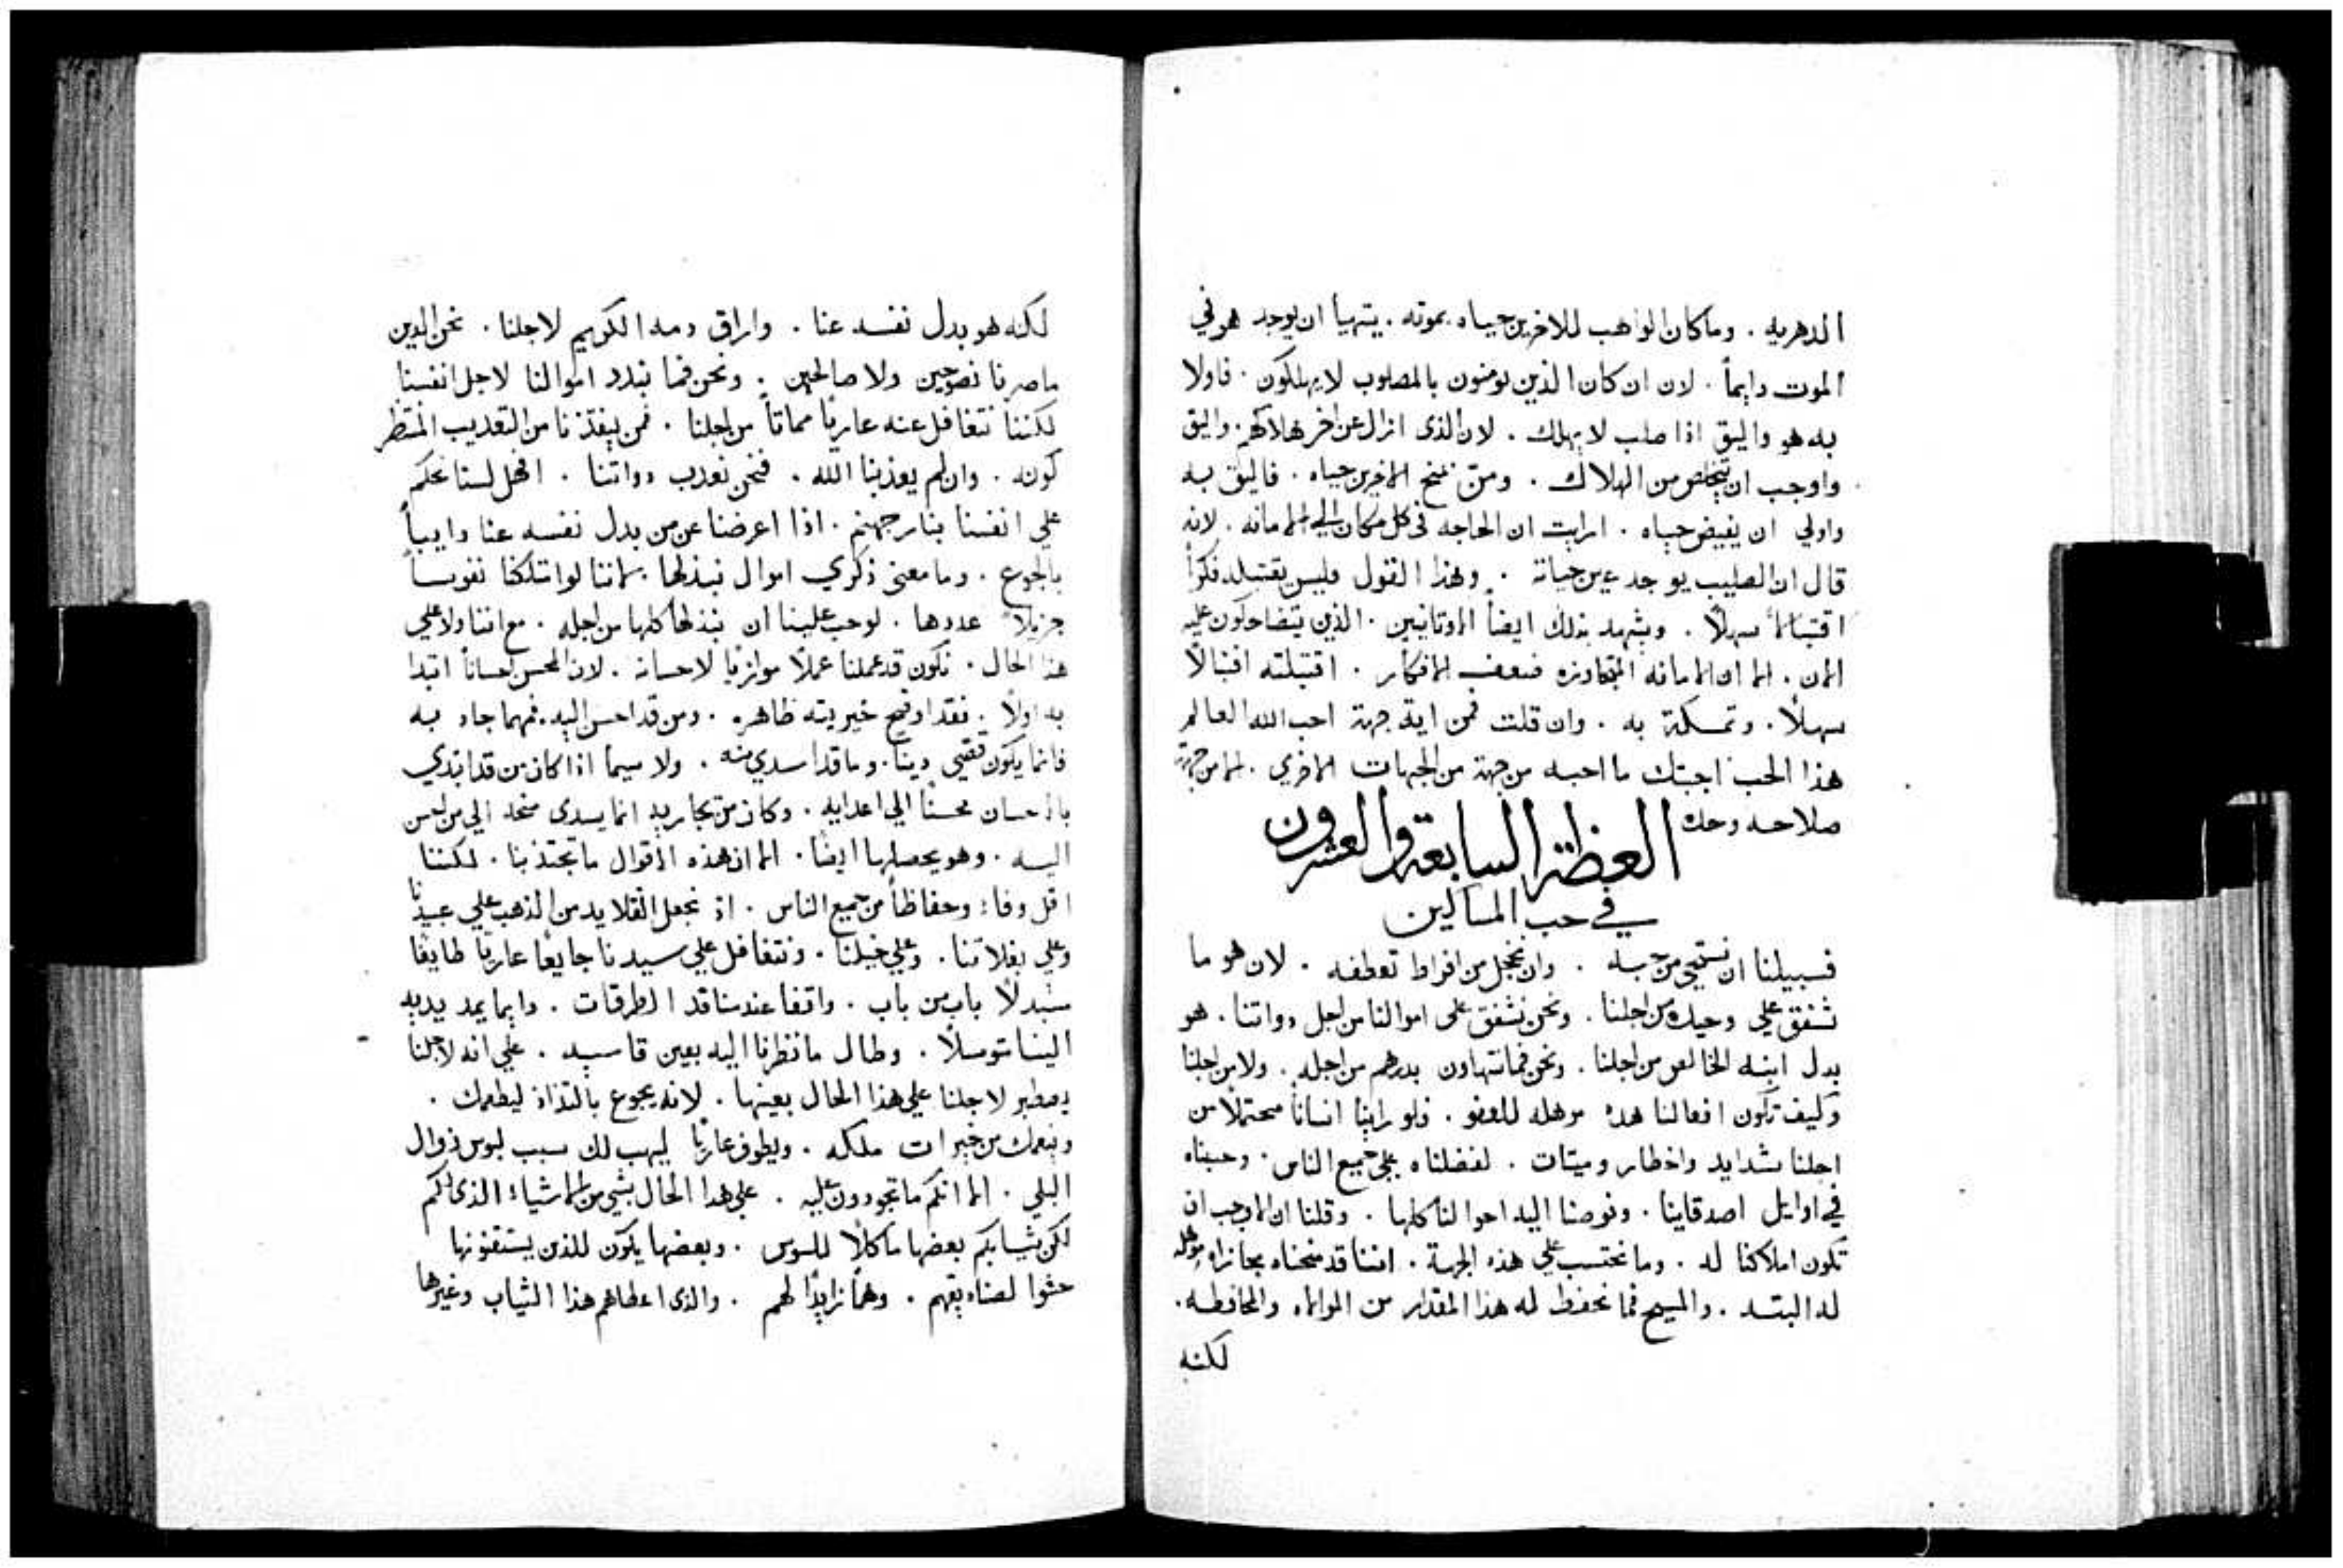 الدهريه . وما كان الواهب للاخرين حياه بموته . يتهيأ ان يوجد هو في
الموت دايماً . لان ان كان الذين يومنون بالمصلوب لا يهلكون . فاولا
به هو واليق اذا صلب لا يهلك . لان الذى ازال عن اخر هلاكهم . واليق
واوجب ان يتخلص من الهلاك . ومن منح الاخرين حياه . فاليق به
واولي ان يفيض حياه . ارايت ان الحاجه في كل مكان الي الامانه . لانه
قال ان الصليب يوجد عين حياة . وهذا القول فليس يقتبله فكراً
اقتبالاً سهلاً . ويشهد بذلك ايضاً الاوثانيين . الذين يتضاحكون عليه
الان . الا ان الامانه المتجاوزه ضعف الافكار . اقتبلته اقتبالاً
سهلاً . وتمسكة به . وان قلت فمن اية جهة احب الله العالم
هذا الحب اجبتك ما احبه من جهة من الجهات الاخري . الا من جهة
صلاحه وحده
العظة السابعة والعشرون
في حب المساكين
فسبيلنا ان نستحي من حبه . وان نخجل من افراط تعطفه . لان هو ما
شفق علي وحيده من اجلنا . ونحن نشفق على اموالنا من اجل دواتنا . هو
بدل ابنه الخالص من اجلنا . ونحن فما نتهاون بدرهم من اجله . ولا من اجلنا
وكيف تكون افعالنا هده موهله للعفو . فلو راينا انساناً محتملاً من
اجلنا شدايد واخطار وميتات . لفضلناه على جميع الناس . وحسبناه
في اوايل اصدقاينا . وفوضنا اليه احوالنا كلها . وقلنا ان الاوجب ان
تكون املاكنا له . وما نحتسب علي هذه الجهة . اننا قد منحناه مجازاه موهله
له البته . والمسيح فما نحفظ له هذا المقدار من الوفاء والمحافظه .
لكنه
لكنه هو بدل نفسه عنا . واراق دمه الكريم لاجلنا . نحن الدين
ما صرنا نصوحين ولا صالحين . ونحن فما نبدد اموالنا لاجل انفسنا
لكننا نتغافل عنه عارياً مماتاً من اجلنا . فمن ينقذنا من التعديب المنتظر
كونه . وان لم يعذبنا الله . فنحن نعدب دواتنا . افهل لسنا نحكم
علي انفسنا بنار جهنم . اذا اعرضنا عن من بدل نفسه عنا دايباً
بالجوع . وما معنى ذكري اموال نبذلها . لاننا لو امتلكنا نفوساً
جزيلاً عددها . لوجب علينا ان نبذلها كلها من اجله . مع اننا ولا علي
هذا الحال . نكون قد عملنا عملاً موازياً لاحسانه . لان المحسن احساناً ابتدا
به اولاً . فقد اوضح خيريته ظاهره . ومن قد احسن اليه فمهما جاد به
فانما يكون تقضي ديناً . وما قد اسدي منه . ولا سيما اذا كان من قد ابتدي
بالاحسان محسناً الي اعدايه . وكان من يجازيه انما يسدى منحه الي من احسن
اليه . وهو يحصلها ايضاً . الا ان هذه الاقوال ما تجتذبنا . لكننا
اقل وفاء وحفاظاً من جميع الناس . اذ نجعل القلايد من الذهب علي عبيدنا
وعلي بغلاتنا . وعلي خيلنا . ونتغافل علي سيدنا جايعاً عارياً طايفاً
مبدلاً باب من باب . واقفا عند مناقد الطرقات . دايما يمد يديه
الينا متوسلاً . وطال ما نظرنا اليه بعين قاسيه . علي انه لاجلنا
يصطبر لاجلنا علي هذا الحال بعينها . لانه يجوع بالتذاذ ليطعمك .
وينعمك من خيرات ملكه . ويطوف عارياً ليهب لك سبب لبوس زوال
البلي . الا انكم ما تجودون عليه . علي هدا الحال بشي من الاشياء الذى لكم
لكن ثيابكم بعضها ماكلاً للسوس . وبعضها يكون للذين يستقنونها
حثوا لصناديقهم . وهماً زايداً لهم . والذى اعطاهم هذا الثياب وغيرها